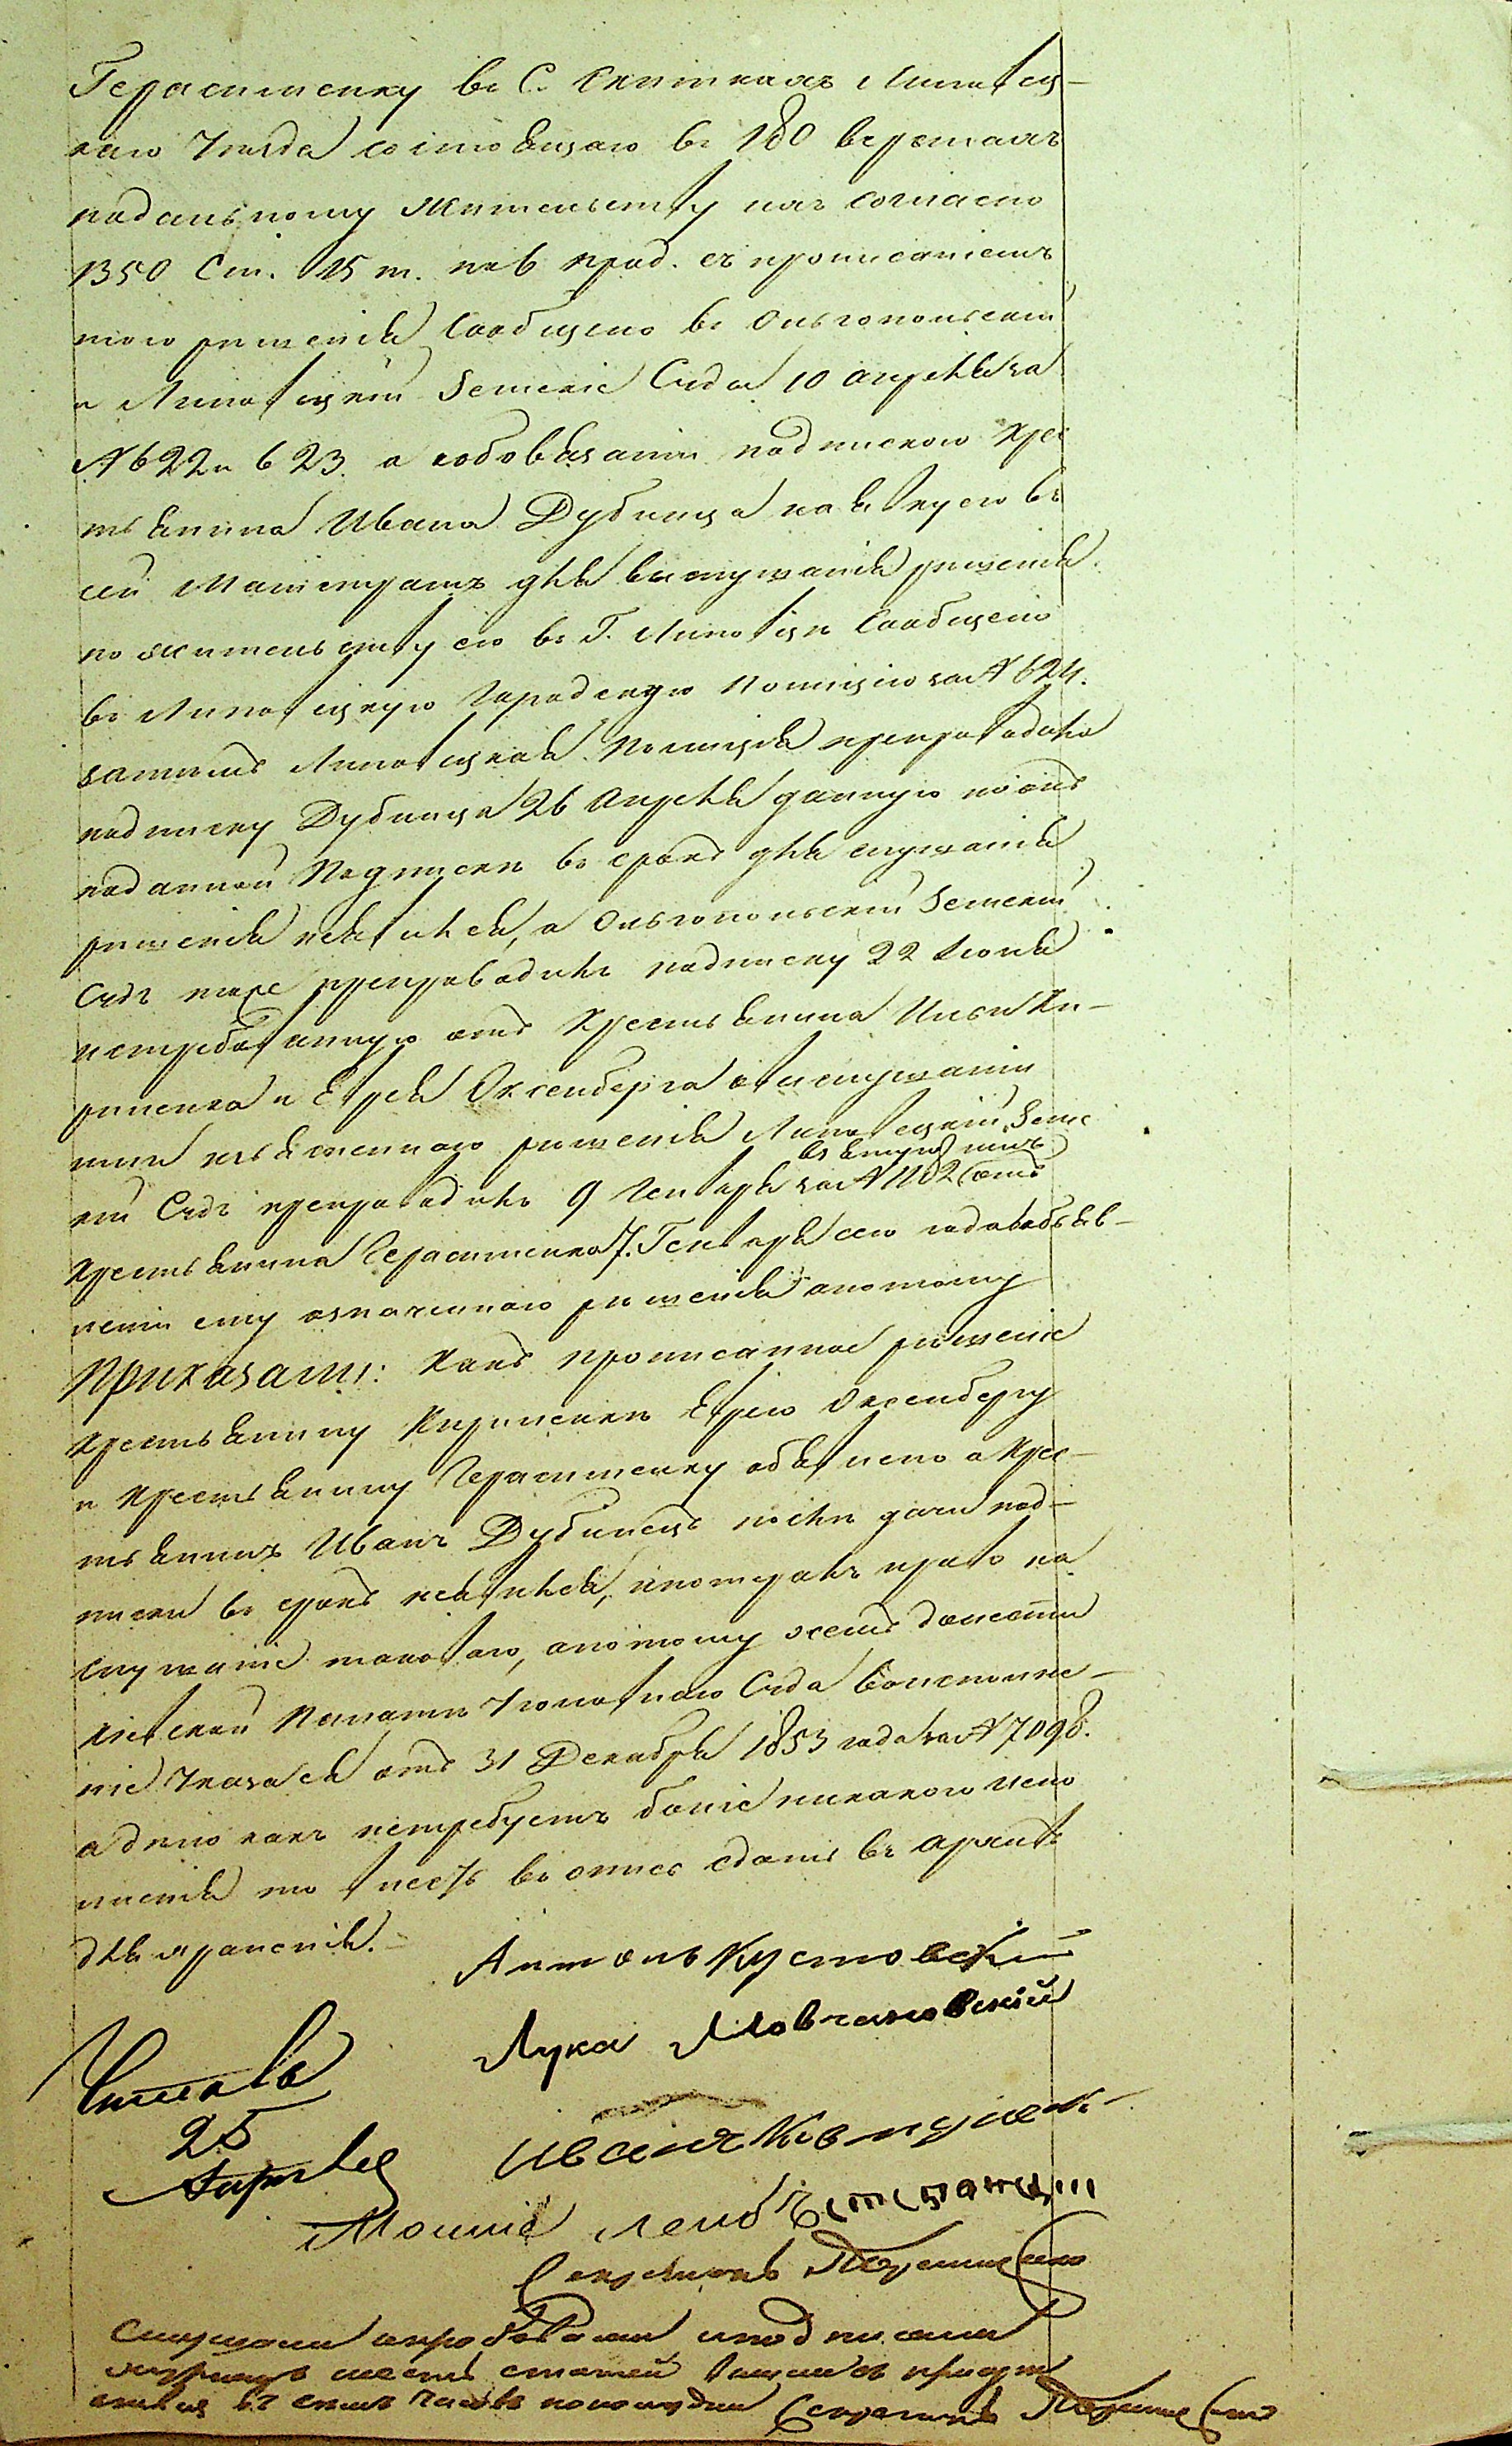 Герасименку въ С. Скиткахъ Липовец-
каго Уезда состоящаго въ 180 верстахъ
подальному жительству ихъ согласно
1350 Ст. 15 т. по 6 прод. съ прописаніемъ
того решенія Сообщено въ Ольгопольскій
и Липовецкій Земскіе Суды 10 апреля за
№ 622 и 623. а о обовязаніи подпискою Крес
тьянина Ивана Дубинца на явку его въ
сей Магистратъ для выслушанія решенія
по жительству его въ Г. Липовце Сообщено
въ Липовецкую Городскую Полицію за № 624.
затемъ Липовецкая Полиція препроводила
подписку Дубинца 26 Апреля данную но онъ
поданной Подписки въ срокъ для слушанія
решенія неявился, а Ольгопольскій Земскій
Судъ тоже препроводилъ подписку 22 Іюня
истребованную отъ Крестьянина Ильи Ки-
риленка и Еврея Оксенберга о выслушаніи
ими изъясненнаго решенія Липовецкій Земс
кій Судъ препроводилъ 9 Генваря за № 1102 отъ
Крестьянина Герасименка 7. Генваря сего года объяв-
леніи ему означеннаго решенія апотому
Приказали: Какъ прописанное решеніе
Крестьянину Кириленке Еврею Оксенбергу
и Крестьянину Герасименку объявлено а Крес-
тьянинъ Иванъ Дубинецъ после дачи под-
писки въ срокъ неявился, ипотерялъ право на
слушаніе таковаго, апотому жемъ донести
Кіевской Палате Уголовнаго Суда Воисполне-
ніе Указа ея отъ 31 Декабря 1853 года за № 7098.
а дело какъ нетребуетъ более никакого испо
лненія то внесть въ опись сдать въ архивъ
для храненія.
Антонъ Кустовскій
Лука Мовчановскій
Читалъ
25
Апреля
Иванъ
Мошко Лейб
Секретарь
Слушали и подписали
журналъ шесть статей
часовъ пополудни Секретарь